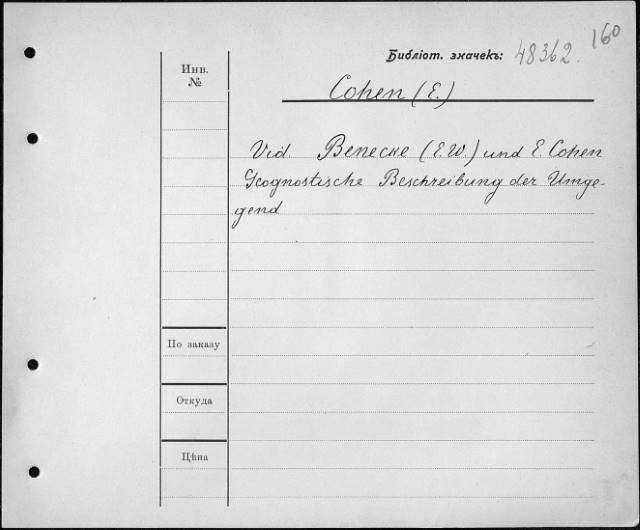 160
Библіот. значекъ: 48362.
Инв.
№
Cohen (E.)
Vid. Benecke (E.W.) und E. Cohen
Geognostische Beschreibung der Umge-
gend
По заказу
Откуда
Цѣна